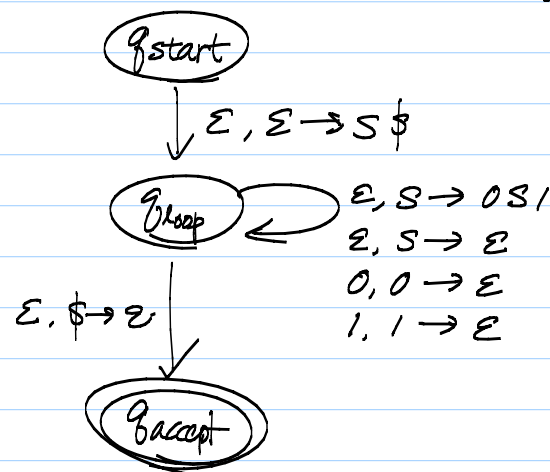 qstart
ε, ε → S $
qloop
ε, S → 0S1
ε, S → ε
0, 0 → ε
1, 1 → ε
ε, $ → ε
qaccept